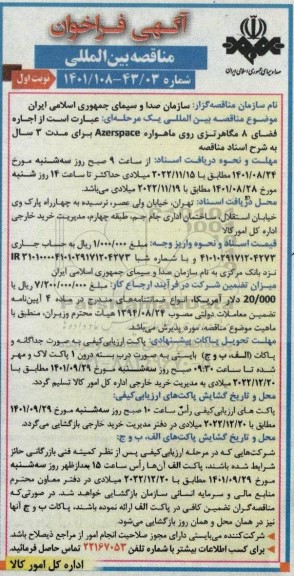 آگهی فراخوان
مناقصه بین المللی
شماره ۱۴۰۱/۱۰۸-۴۳/۰۳
نوبت اول
صدا و سیمای جمهوری اسلامی ایران
نام سازمان مناقصه‌گزار: سازمان صدا و سیمای جمهوری اسلامی ایران
موضوع مناقصه بین‌المللی یک مرحله‌ای: عبارت است از اجاره
فضای ۸ مگاهرتزی روی ماهواره Azerspace برای مدت ۳ سال
به شرح اسناد مناقصه
مهلت و نحوه دریافت اسناد: از ساعت ۹ صبح روز سه‌شنبه مورخ
۱۴۰۱/۰۸/۲۴ مطابق با ۲۰۲۲/۱۱/۱۵ میلادی حداکثر تا ساعت ۱۴ روز شنبه
مورخ ۱۴۰۱/۰۸/۲۸ مطابق با ۲۰۲۲/۱۱/۱۹ میلادی می‌باشد.
محل دریافت اسناد: تهران، خیابان ولی عصر، نرسیده به چهارراه پارک وی
خیابان استقلال، ساختمان اداری جام جم، طبقه چهارم، مدیریت خرید خارجی
اداره کل امور کالا
قیمت اسناد و نحوه واریز وجه: مبلغ ۱/۰۰۰/۰۰۰ ریال به حساب جاری
۴۱۰۱۰۲۹۱۷۱۲۰۴۲۷۳ و با شماره شبا IR ۳۱۰۱۰۰۰۰۴۱۰۱۰۲۹۱۷۱۲۰۴۲۷۳
نزد بانک مرکزی به نام سازمان صدا و سیمای جمهوری اسلامی ایران
میزان تضمین شرکت در فرآیند ارجاع کار: مبلغ ۷/۲۰۰/۰۰۰/۰۰۰ ریال یا
20/000 دلار آمریکا، انواع ضمانتنامه‌های مندرج در ماده ۴ آیین‌نامه
تضمین معاملات دولتی مصوب ۱۳۹۴/۰۸/۲۴ هیات محترم وزیران، منطبق با
ماهیت موضوع مناقصه، مورد پذیرش می‌باشد.
مهلت تحویل پاکات پیشنهادی: پاکت ارزیابی کیفی به صورت جداگانه و
پاکات (الف، ب و ج) بایستی به صورت درب بسته درون ۱ پاکت لاک و مهر
شده تا ساعت ۰۹:۳۰ صبح روز سه‌شنبه مورخ ۱۴۰۱/۰۹/۲۹ مطابق با
۲۰۲۲/۱۲/۲۰ میلادی به مدیریت خرید خارجی اداره کل امور کالا تسلیم گردد.
محل و تاریخ گشایش پاکت‌های ارزیابی‌کیفی:
پاکت های ارزیابی‌کیفی رأس ساعت ۱۰ صبح روز سه‌شنبه مورخ ۱۴۰۱/۰۹/۲۹
مطابق با ۲۰۲۲/۱۲/۲۰ میلادی در دفتر مدیریت خرید خارجی بازگشایی می‌گردد.
محل و تاریخ گشایش پاکت‌های الف، ب و ج:
شرکت‌هایی که در مرحله ارزیابی‌کیفی پس از نظر کمیته فنی بازرگانی حائز
شرایط شده باشند، پاکت الف آن‌ها رأس ساعت ۱۵ بعدازظهر روز سه‌شنبه
مورخ ۱۴۰۱/۰۹/۲۹ مطابق با ۲۰۲۲/۱۲/۲۰ میلادی در دفتر معاون محترم
منابع مالی و سرمایه انسانی سازمان بازگشایی خواهد شد. در صورتی‌که
مناقصه‌گران تضمین کافی در پاکت الف ارائه نموده باشند، پاکات ب و ج آنها
نیز در همان محل و همان روز بازگشایی می‌شود.
شرکت کننده می‌بایستی دارای مجوز صلاحیت انجام امور از مراجع ذیصلاح باشد.
برای کسب اطلاعات بیشتر با شماره تلفن ۲۲۱۶۷۰۵۳ تماس حاصل فرمائید.
اداره کل امور کالا